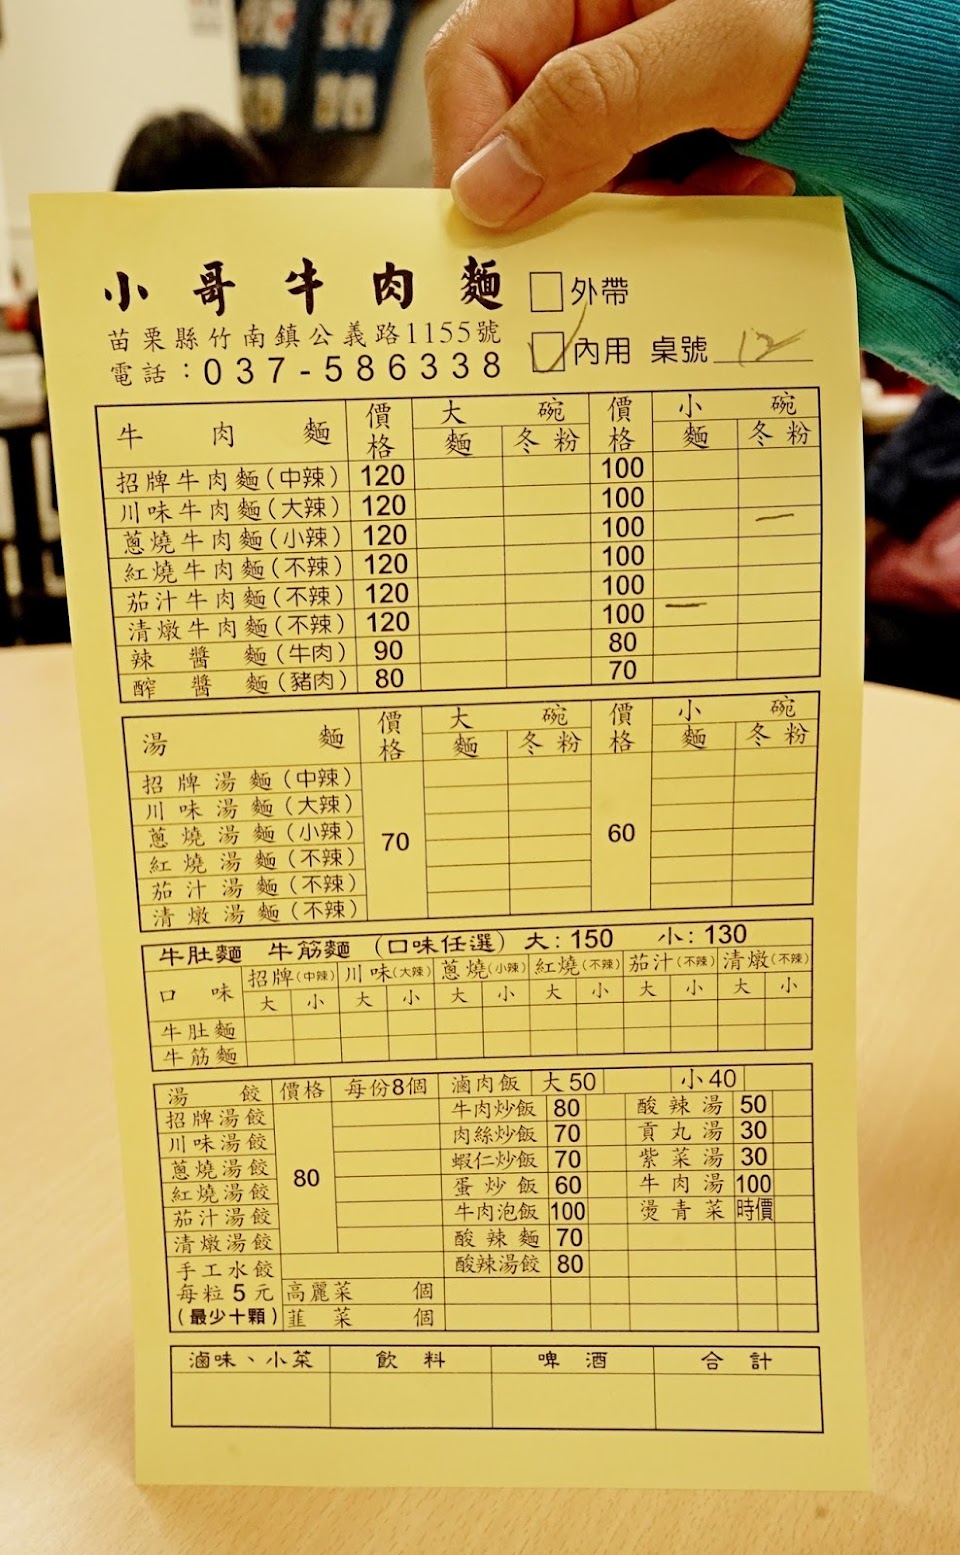 小哥牛肉麵
苗栗縣竹南鎮公義路1155號
電話：037-586338
外帶
內用 桌號 12
牛肉麵 價格 大碗 價格 小碗
麵 冬粉 麵 冬粉
招牌牛肉麵(中辣) 120 100
川味牛肉麵(大辣) 120 100
蔥燒牛肉麵(小辣) 120 100
紅燒牛肉麵(不辣) 120 100
茄汁牛肉麵(不辣) 120 100
清燉牛肉麵(不辣) 120 100
辣醬麵(牛肉) 90 80
酢醬麵(豬肉) 80 70
湯麵 價格 大碗 價格 小碗
麵 冬粉 麵 冬粉
招牌湯麵(中辣)
川味湯麵(大辣)
蔥燒湯麵(小辣) 70 60
紅燒湯麵(不辣)
茄汁湯麵(不辣)
清燉湯麵(不辣)
牛肚麵 牛筋麵 (口味任選) 大：150 小：130
口味 招牌(中辣) 川味(大辣) 蔥燒(小辣) 紅燒(不辣) 茄汁(不辣) 清燉(不辣)
大 小 大 小 大 小 大 小 大 小 大 小
牛肚麵
牛筋麵
湯餃 價格 每份8個 滷肉飯 大50 小40
招牌湯餃 牛肉炒飯 80 酸辣湯 50
川味湯餃 肉絲炒飯 70 貢丸湯 30
蔥燒湯餃 80 蝦仁炒飯 70 紫菜湯 30
紅燒湯餃 蛋炒飯 60 牛肉湯 100
茄汁湯餃 牛肉泡飯 100 燙青菜 時價
清燉湯餃 酸辣麵 70
手工水餃 酸辣湯餃 80
每粒5元 高麗菜 個
(最少十顆) 韮菜 個
滷味、小菜 飲料 啤酒 合計